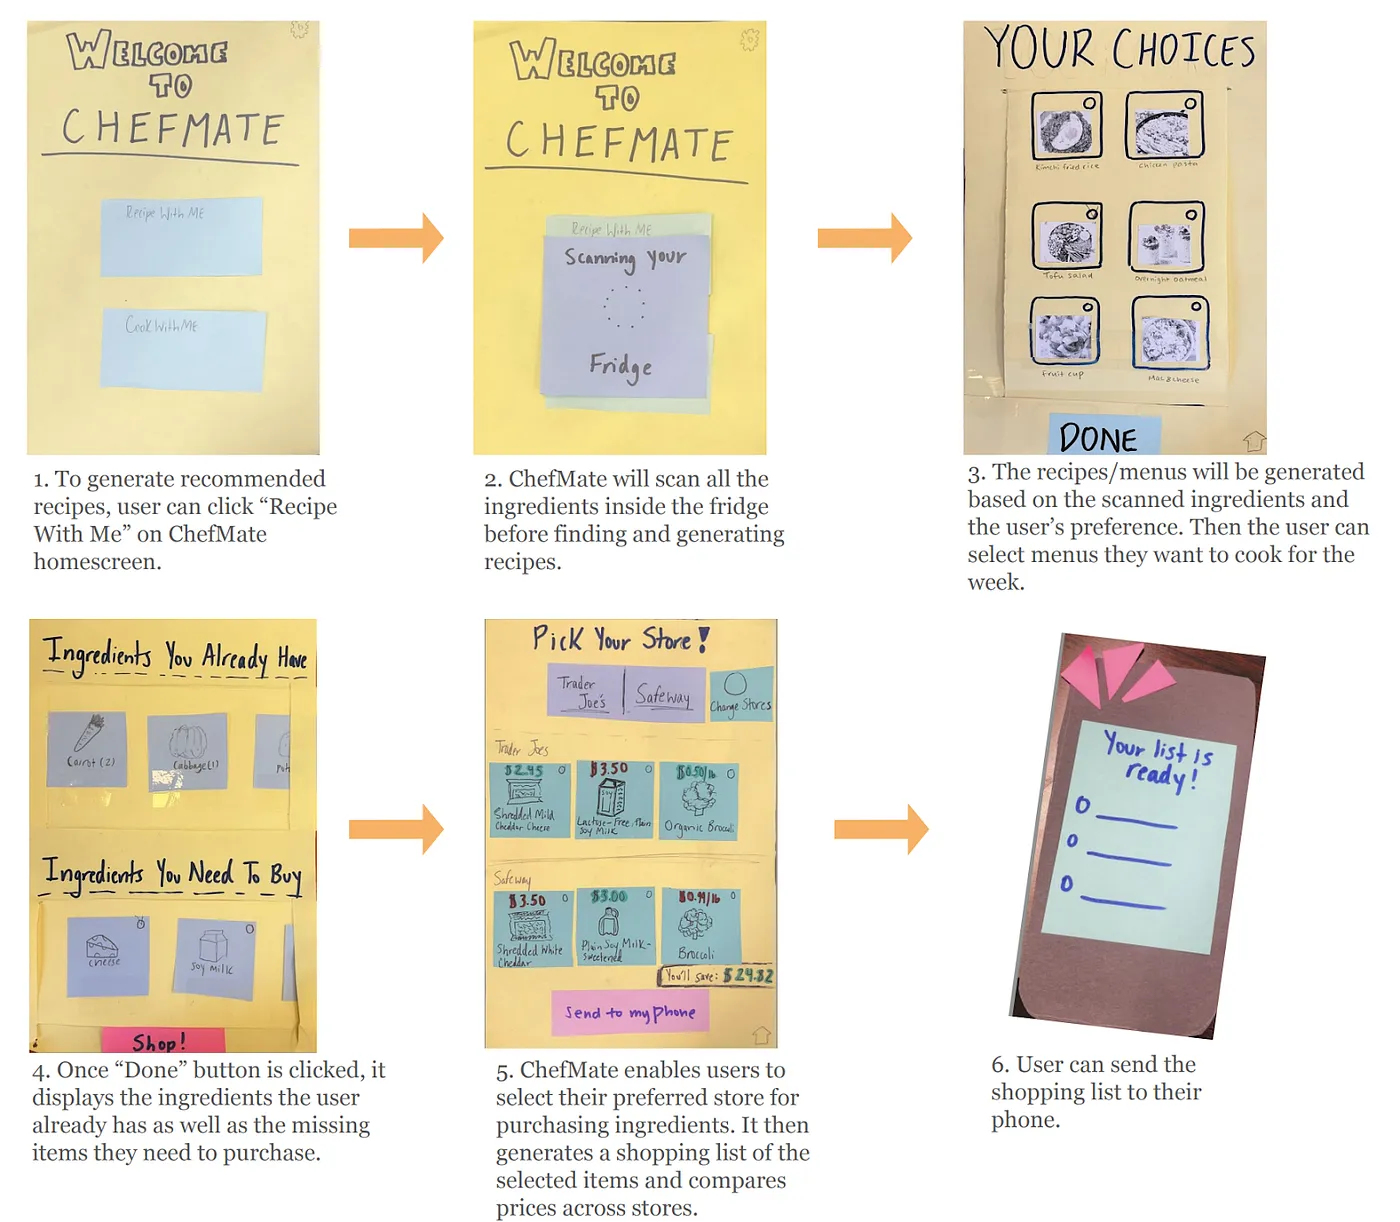 WELCOME
TO
CHEFMATE
Recipe With ME
Cook With ME
1. To generate recommended
recipes, user can click “Recipe
With Me” on ChefMate
homescreen.
WELCOME
TO
CHEFMATE
Recipe With ME
Scanning your
Fridge
2. ChefMate will scan all the
ingredients inside the fridge
before finding and generating
recipes.
YOUR CHOICES
Kimchi fried rice
Chicken pasta
Tofu salad
Overnight oatmeal
Fruit cup
Mac&cheese
DONE
3. The recipes/menus will be generated
based on the scanned ingredients and
the user’s preference. Then the user can
select menus they want to cook for the
week.
Ingredients You Already Have
Carrot (2)
Cabbage (1)
Ingredients You Need To Buy
cheese
soy milk
Shop!
4. Once “Done” button is clicked, it
displays the ingredients the user
already has as well as the missing
items they need to purchase.
Pick Your Store!
Trader
Joe's
Safeway
Change Stores
Trader Joes
$2.45
$3.50
$0.50/lb
Shredded Mild
Cheddar Cheese
Lactose-Free, Plain
Soy Milk
Organic Broccoli
Safeway
$3.50
$3.00
$0.99/lb
Shredded White
Cheddar
Plain Soy Milk-
Sweetened
Broccoli
You'll save: $24.82
Send to my phone
5. ChefMate enables users to
select their preferred store for
purchasing ingredients. It then
generates a shopping list of the
selected items and compares
prices across stores.
Your list is
ready!
6. User can send the
shopping list to their
phone.